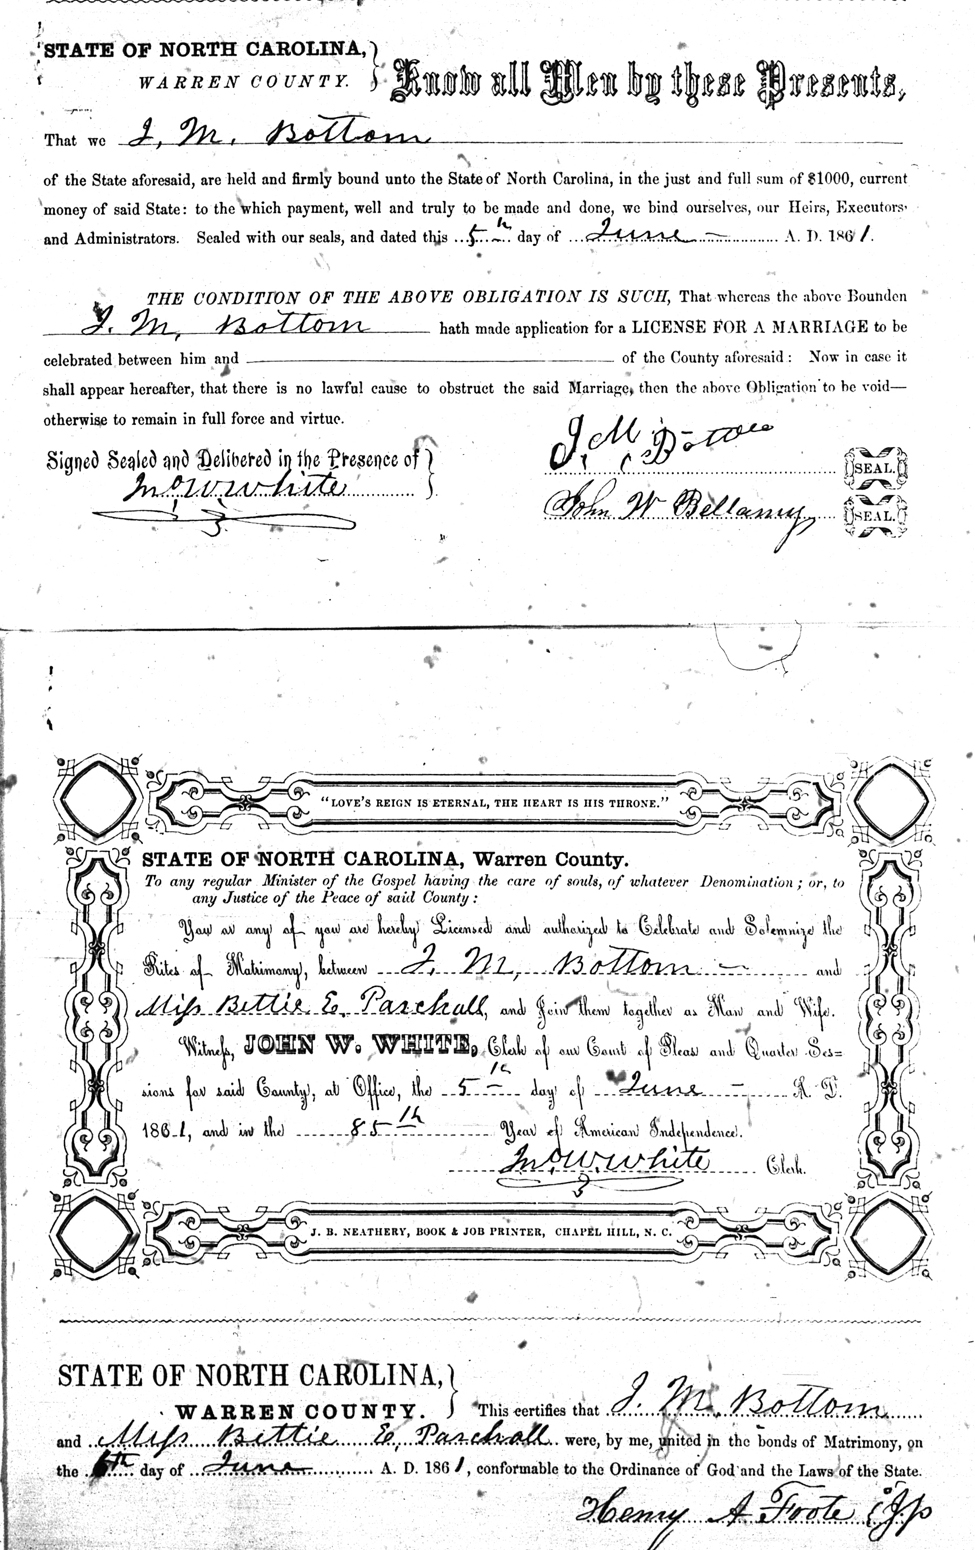 STATE OF NORTH CAROLINA,
WARREN COUNTY.
Know all Men by these Presents,
That we J. M. Bottom
of the State aforesaid, are held and firmly bound unto the State of North Carolina, in the just and full sum of $1000, current
money of said State: to the which payment, well and truly to be made and done, we bind ourselves, our Heirs, Executors
and Administrators. Sealed with our seals, and dated this 5th day of June A. D. 1861.
THE CONDITION OF THE ABOVE OBLIGATION IS SUCH, That whereas the above Bounden
J. M. Bottom hath made application for a LICENSE FOR A MARRIAGE to be
celebrated between him and of the County aforesaid: Now in case it
shall appear hereafter, that there is no lawful cause to obstruct the said Marriage, then the above Obligation to be void—
otherwise to remain in full force and virtue.
Signed Sealed and Delibered in the Presence of
J. M. Bottom SEAL.
Jno W. White
John W Bellamy SEAL.
"LOVE'S REIGN IS ETERNAL, THE HEART IS HIS THRONE."
STATE OF NORTH CAROLINA, Warren County.
To any regular Minister of the Gospel having the care of souls, of whatever Denomination; or, to
any Justice of the Peace of said County:
You or any of you are hereby Licensed and authorized to Celebrate and Solemnize the
Rites of Matrimony, between J. M. Bottom and
Miss Bettie E. Paschall, and Join them together as Man and Wife.
Witness, JOHN W. WHITE, Clerk of our Court of Pleas and Quarter Ses=
sions for said County, at Office, the 5th day of June A. D.
1861, and in the 85th Year of American Independence.
Jno W. White Clerk.
J. B. NEATHERY, BOOK & JOB PRINTER, CHAPEL HILL, N. C.
STATE OF NORTH CAROLINA,
WARREN COUNTY.
This certifies that J. M. Bottom
and Miss Bettie E. Paschall were, by me, united in the bonds of Matrimony, on
the 6th day of June A. D. 1861, conformable to the Ordinance of God and the Laws of the State.
Henry A Foote J.p